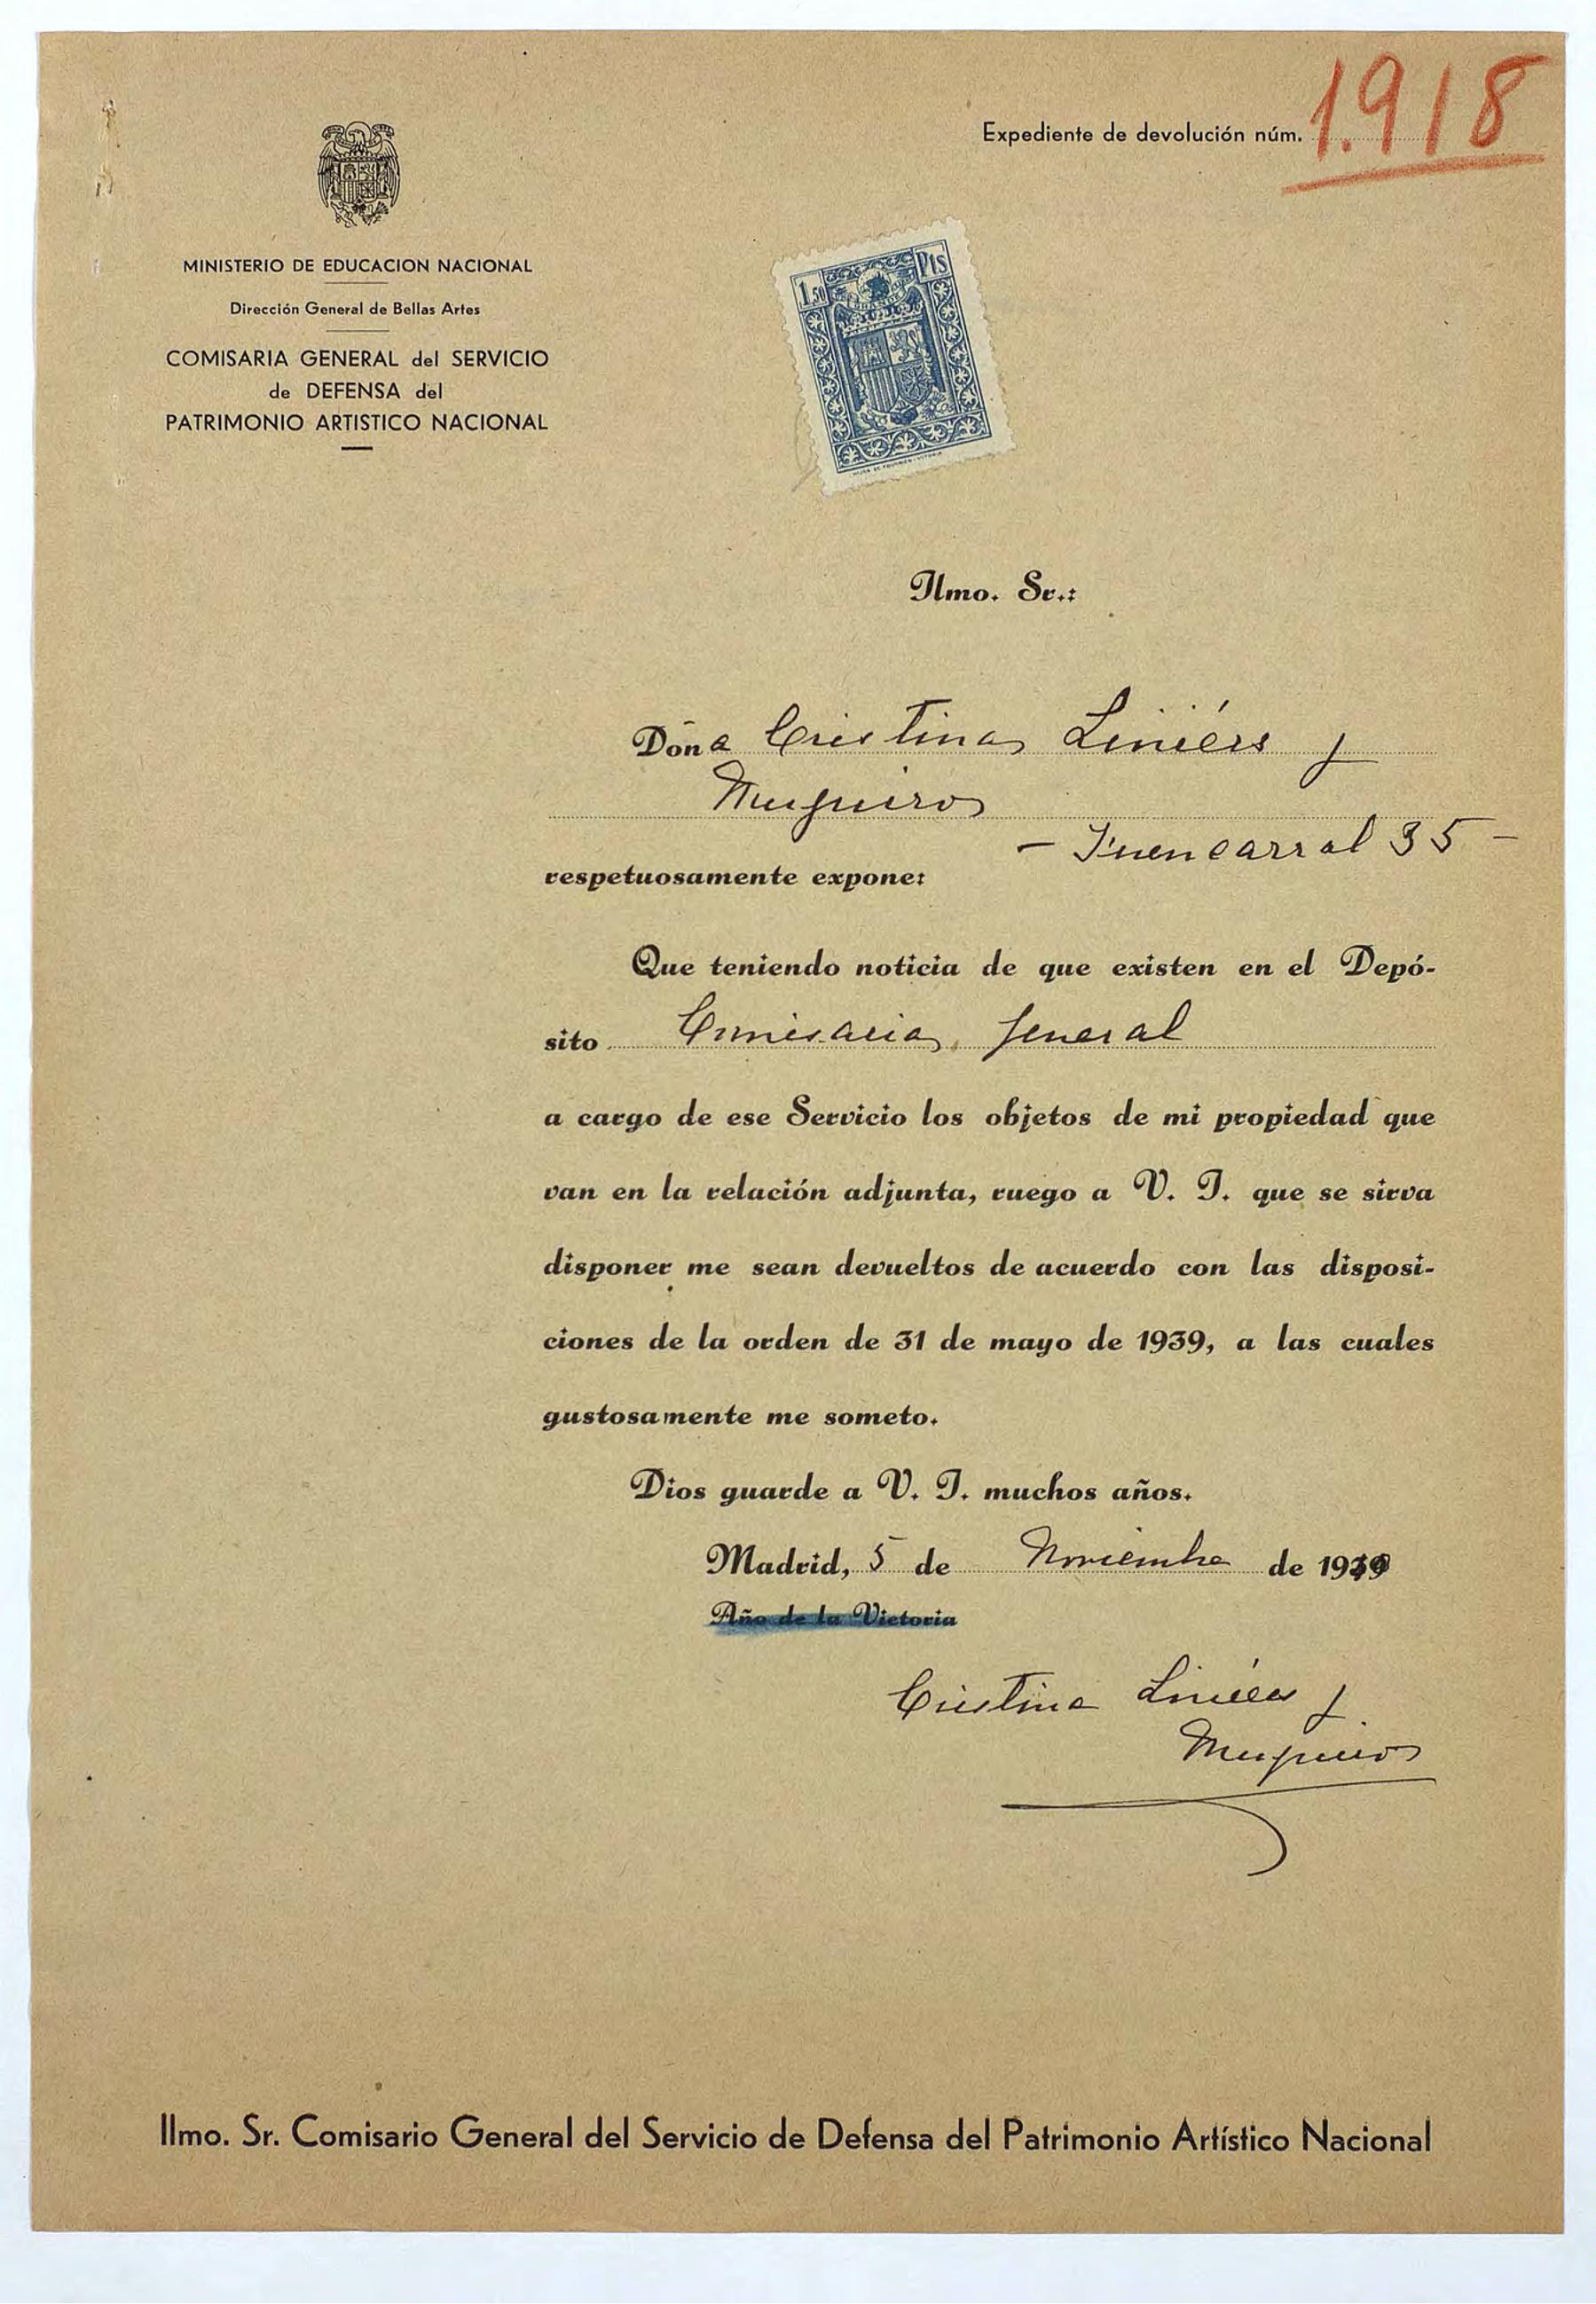 Expediente de devolución núm. 1.918
MINISTERIO DE EDUCACION NACIONAL
Dirección General de Bellas Artes
COMISARIA GENERAL del SERVICIO
de DEFENSA del
PATRIMONIO ARTISTICO NACIONAL
1,50 Pts
Ilmo. Sr.:
Doña Cristina Liniérs y
Muguiro
- Fuencarral 35 -
respetuosamente expone:
Que teniendo noticia de que existen en el Depó-
sito Comisaria general
a cargo de ese Servicio los objetos de mi propiedad que
van en la relación adjunta, ruego a V. I. que se sirva
disponer me sean devueltos de acuerdo con las disposi-
ciones de la orden de 31 de mayo de 1939, a las cuales
gustosamente me someto.
Dios guarde a V. I. muchos años.
Madrid, 5 de Noviembre de 1940
Año de la Victoria
Cristina Liniérs y
Muguiro
Ilmo. Sr. Comisario General del Servicio de Defensa del Patrimonio Artístico Nacional